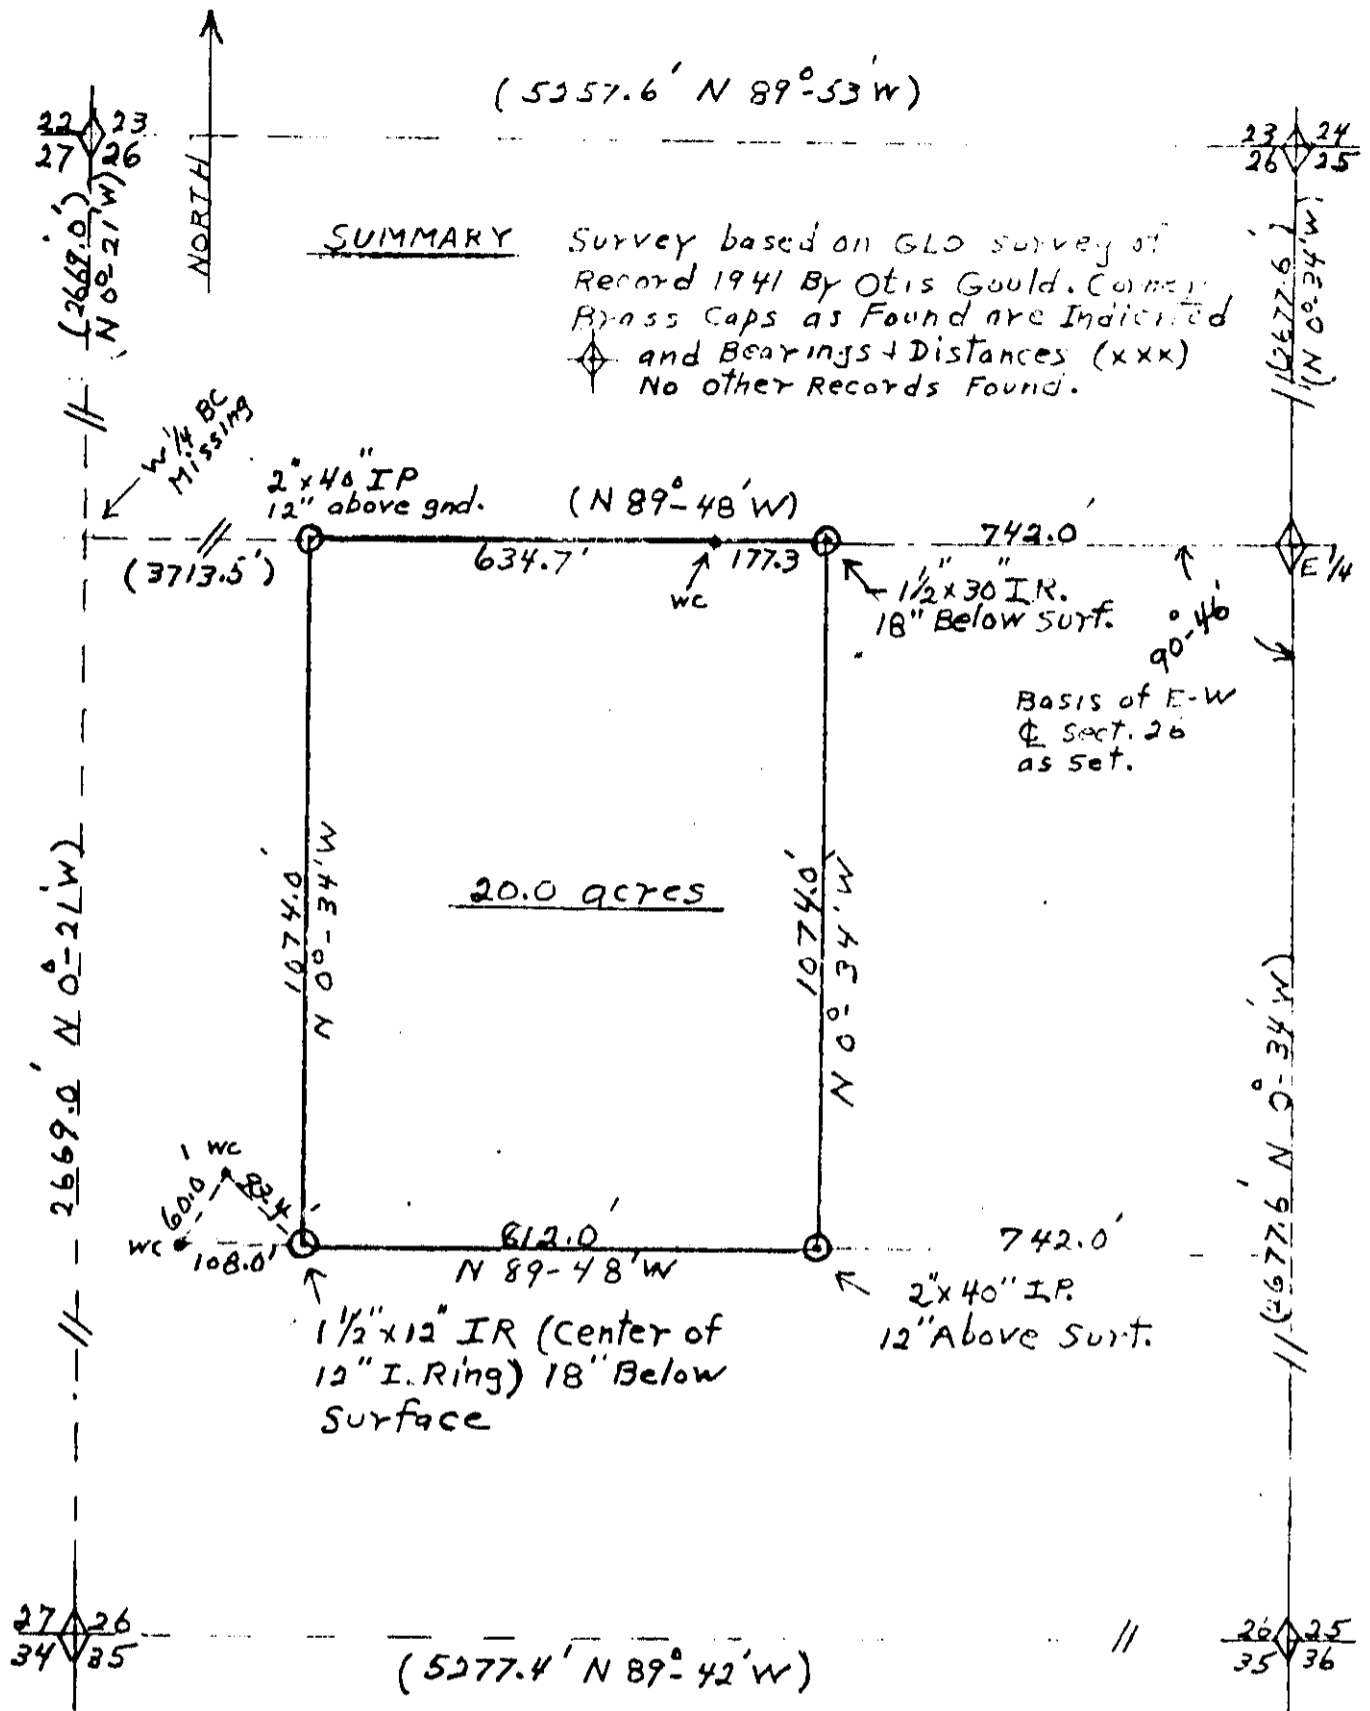 (5257.6' N 89°-53'W)
22 23
27 26
23 24
26 25
NORTH
(2669.0')
N 0°-21'W)
SUMMARY Survey based on GLO survey of
Record 1941 By Otis Gould. Corner
Brass Caps as Found are Indicated
and Bearings & Distances (xxx)
No other Records Found.
(2677.6')
(N 0°-34'W)
W 1/4 BC
Missing
2"x40" IP
12" above gnd.
(N 89°-48'W)
742.0'
(3713.5')
634.7'
177.3
WC
E 1/4
1 1/2"x30" I.R.
18" Below Surf.
90°-46'
Basis of E-W
℄ Sect. 26
as Set.
1074.0'
N 0°-34'W
20.0 acres
1074.0'
N 0°-34'W
2669.0' N 0°-21'W)
(2677.6' N 0°-34'W)
WC
60.0'
93.4'
WC
108.0'
812.0'
N 89-48'W
742.0'
1 1/2"x12" IR (Center of
12" I. Ring) 18" Below
Surface
2"x40" I.P.
12" Above Surf.
27 26
34 35
(5277.4' N 89°-42'W)
26 25
35 36